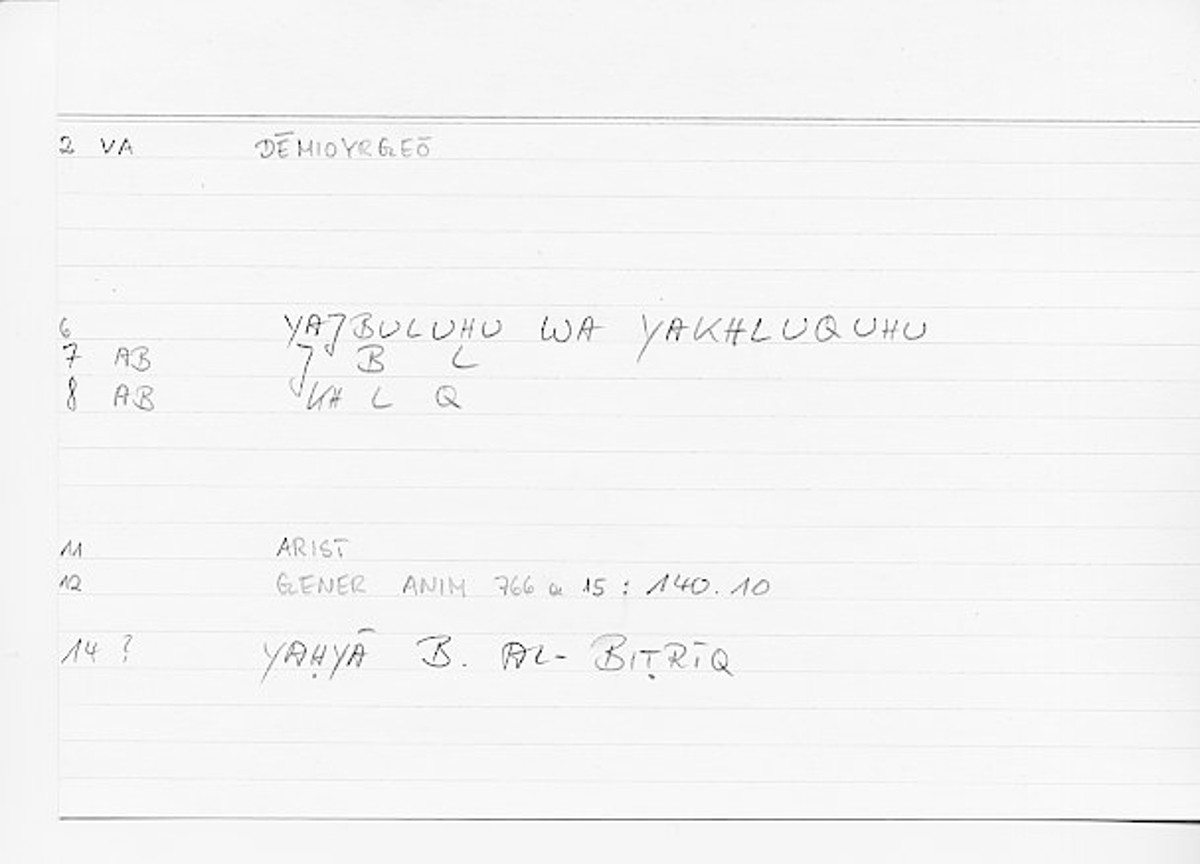 2 VA DĒMIOYRGEŌ
6 YAJBULUHU WA YAKHLUQUHU
7 AB J B L
8 AB KH L Q
11 ARIST
12 GENER ANIM 766 a 15 : 140.10
14 ? YAḤYĀ B. AL-BIṬRĪQ